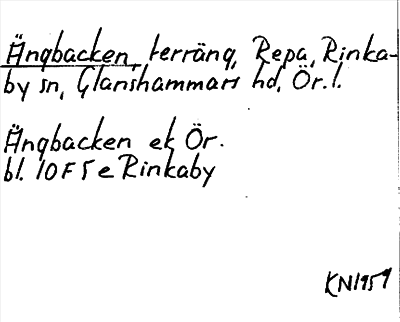 Ängbacken, terräng, Repa, Rinka-
by sn, Glanshammars hd, Ör. l.
Ängbacken ek Ör.
bl. 10 F 5 e Rinkaby
KN 1959